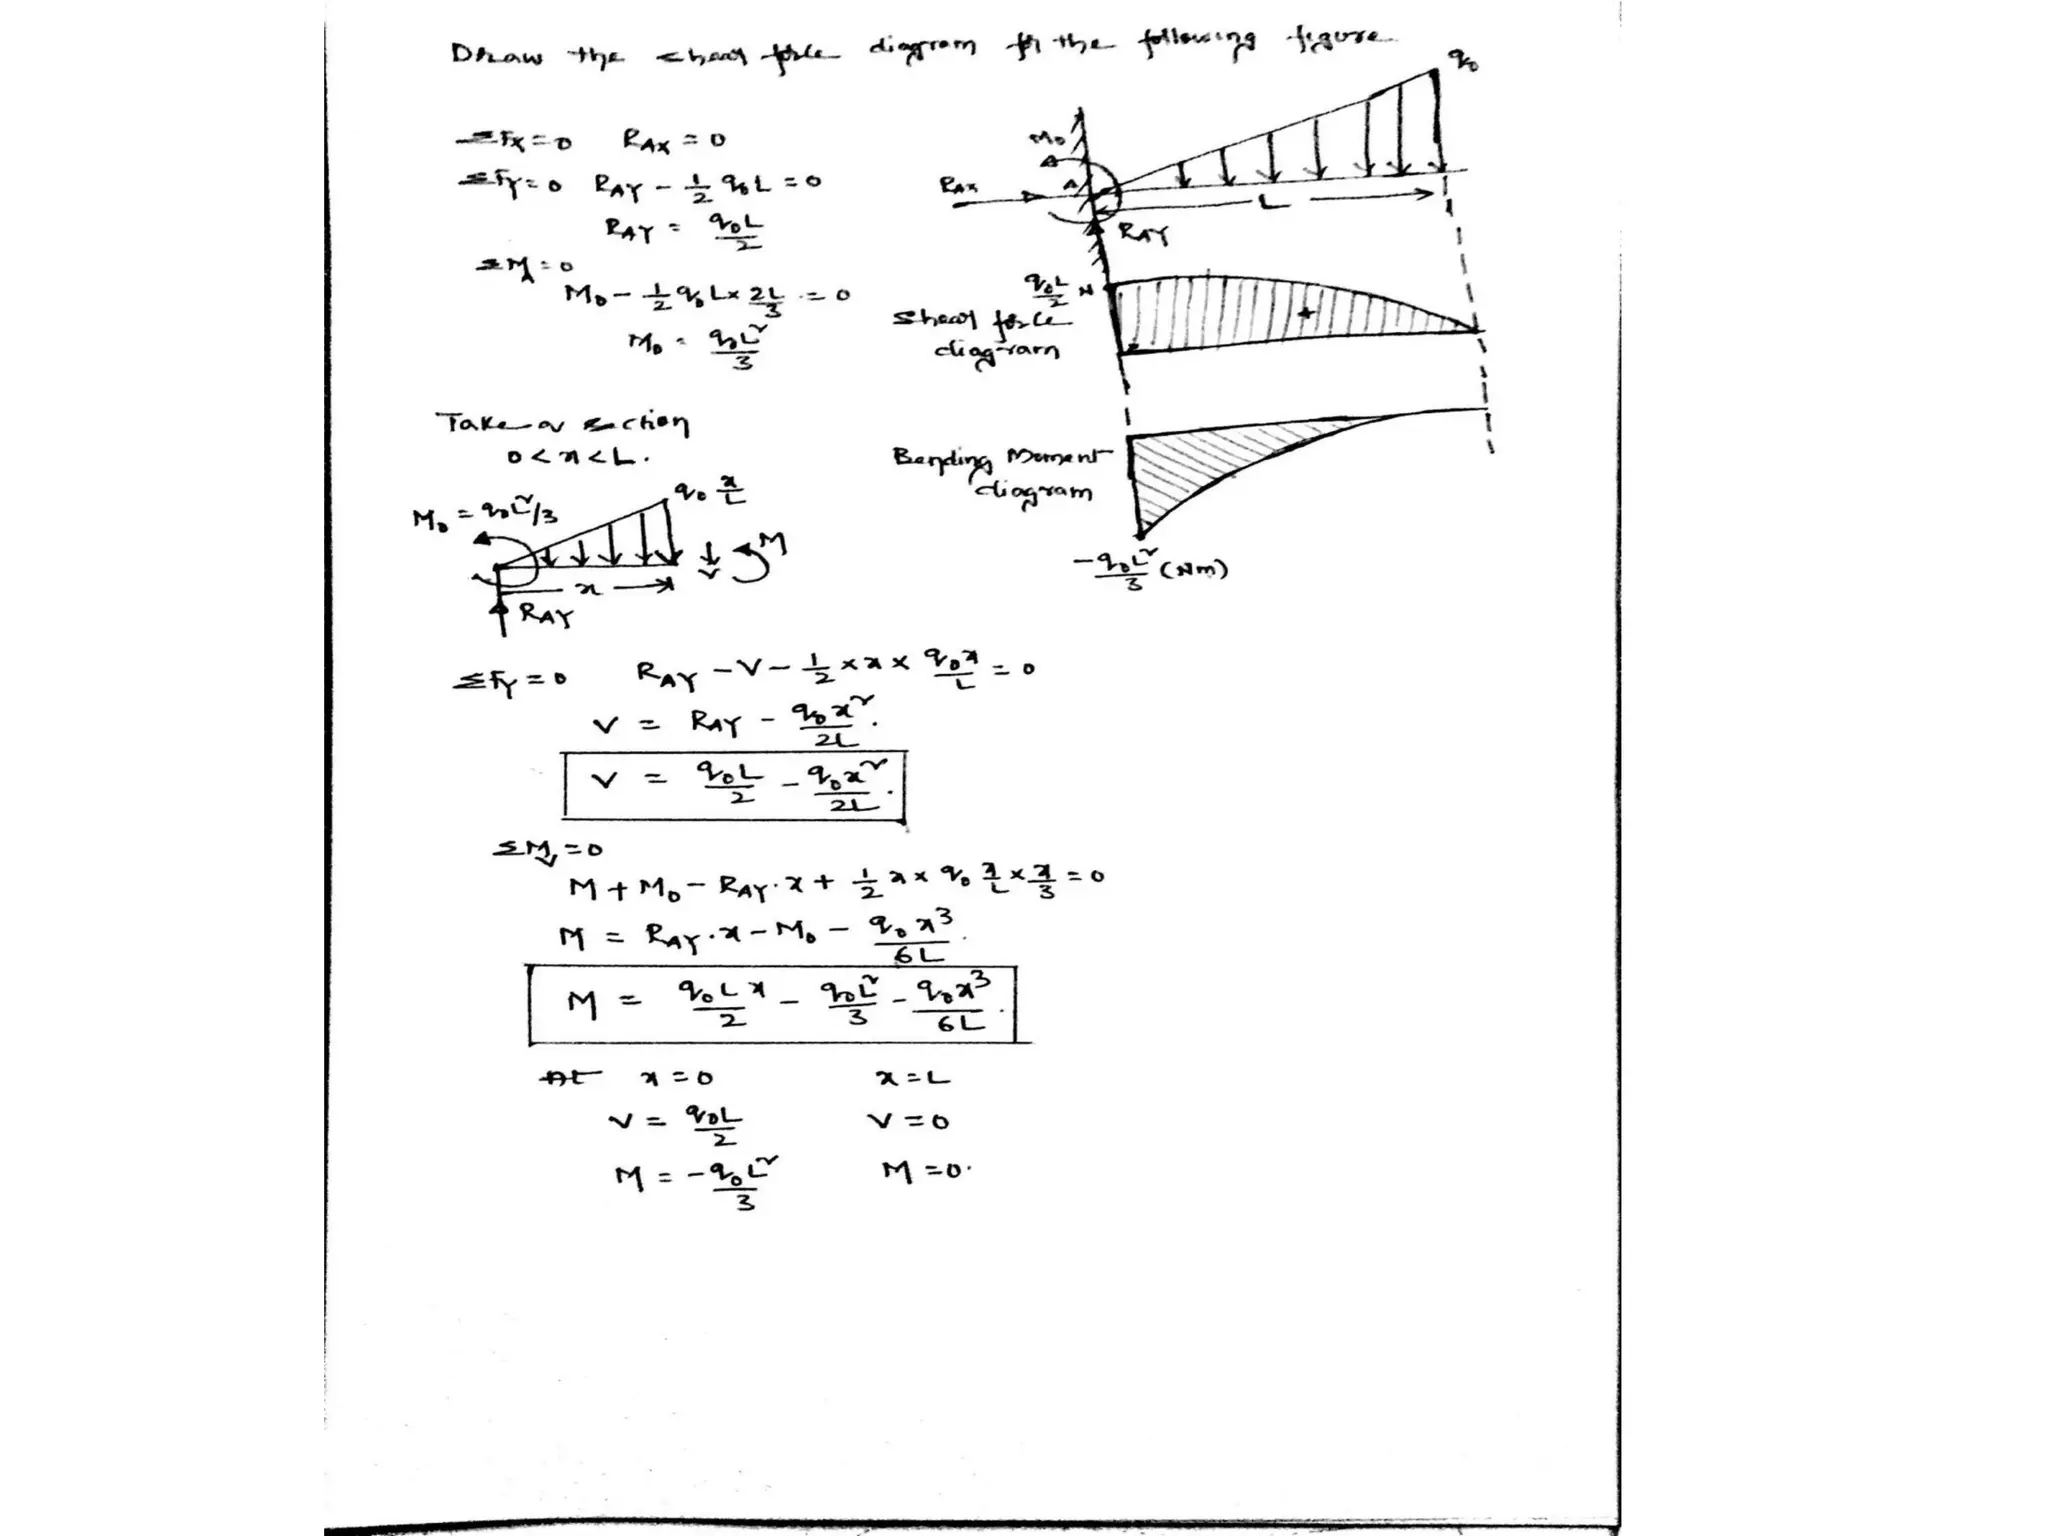 Draw the shear force diagram for the following figure
ΣFx=0 RAX = 0
ΣFy=0 RAY - 1/2 q₀L = 0
RAY = q₀L/2
ΣMA=0
M₀ - 1/2 q₀L x 2L/3 = 0
M₀ = q₀L²/3
q₀
M₀
RAX
A
L
RAY
q₀L/2 N
Shear force
diagram
+
Bending Moment
diagram
-q₀L²/3 (Nm)
Take a section
0 < x < L.
M₀ = q₀L²/3
q₀ x/L
V
M
x
RAY
ΣFy = 0 RAY - V - 1/2 × x × q₀x/L = 0
V = RAY - q₀x²/2L.
V = q₀L/2 - q₀x²/2L.
ΣMv = 0
M + M₀ - RAY·x + 1/2 x × q₀ x/L × x/3 = 0
M = RAY·x - M₀ - q₀x³/6L.
M = q₀Lx/2 - q₀L²/3 - q₀x³/6L.
At x = 0 x = L
V = q₀L/2 V = 0
M = -q₀L²/3 M = 0.